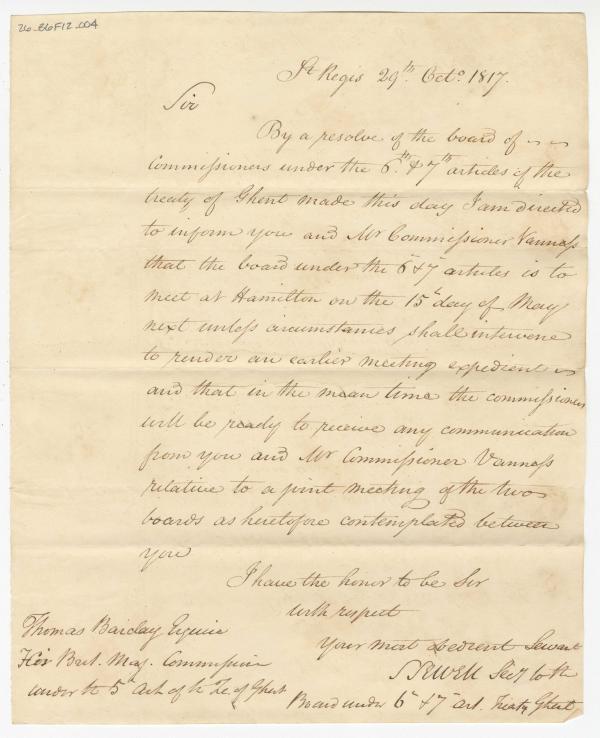 26_86F12_004
St Regis 29th. Octo. 1817.
Sir
By a resolve of the board of
commissioners under the 6th. & 7th articles of the
treaty of Ghent made this day I am directed
to inform you and Mr Commissioner Vanness
that the board under the 6th & 7th articles is to
meet at Hamilton on the 15th day of May
next unless circumstances shall intervene
to render an earlier meeting expedient
and that in the mean time the commissioners
will be ready to receive any communication
from you and Mr Commissioner Vanness
relative to a joint meeting of the two
boards as heretofore contemplated between
you
I have the honor to be Sir
with respect
your most obedient Servant
Thomas Barclay Esquire
His Brit. Maj. Commissioner
under the 5th Art. of the Te. of Ghent
S SEWELL Secy to the
Board under 6th & 7th art. Treaty Ghent